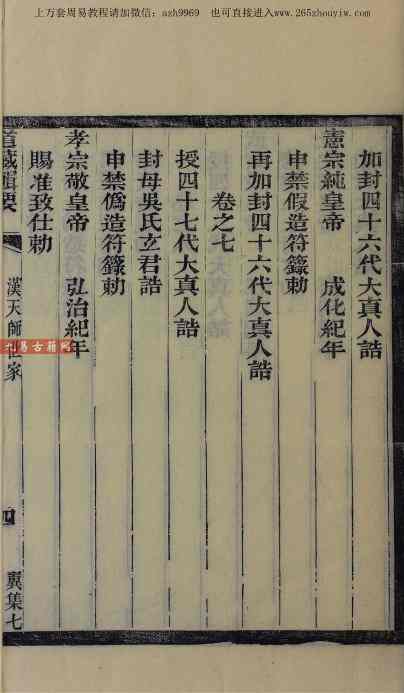 上万套周易教程请加微信：azh9969 也可直接进入www.265zhouyiw.com
加封四十六代大真人誥
憲宗純皇帝 成化紀年
申禁假造符籙勅
再加封四十六代大真人誥
卷之七
授四十七代大真人誥
封母吳氏玄君誥
申禁僞造符籙勅
孝宗敬皇帝 弘治紀年
賜准致仕勅
道藏輯要 漢天師世家 四 翼集七
易古籍网